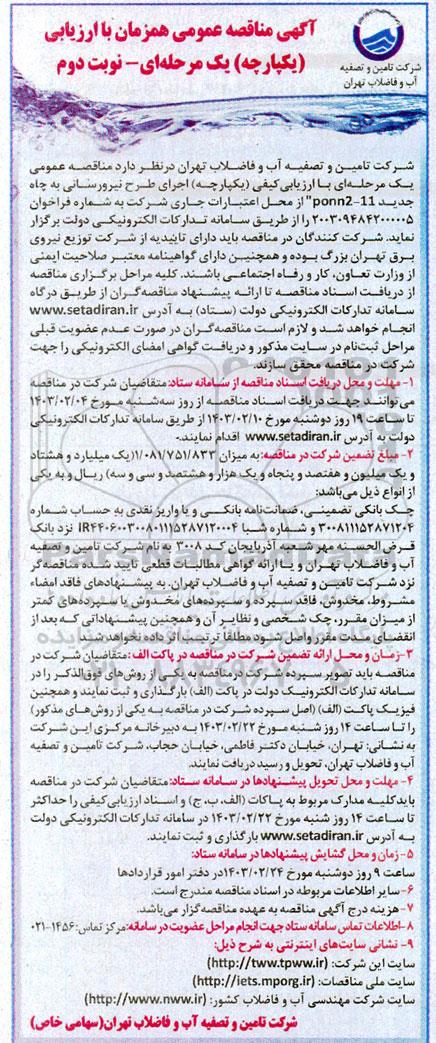 آگهی مناقصه عمومی همزمان با ارزیابی
(یکپارچه) یک مرحله‌ای - نوبت دوم
شرکت تامین و تصفیه
آب و فاضلاب تهران
شرکت تامین و تصفیه آب و فاضلاب تهران درنظر دارد مناقصه عمومی
یک مرحله‌ای با ارزیابی کیفی (یکپارچه) اجرای طرح نیرورسانی به چاه
جدید ponn2-11" از محل اعتبارات جاری شرکت به شماره فراخوان
۲۰۰۳۰۹۴۸۴۲۰۰۰۰۰۵ را از طریق سامانه تدارکات الکترونیکی دولت برگزار
نماید. شرکت کنندگان در مناقصه باید دارای تاییدیه از شرکت توزیع نیروی
برق تهران بزرگ بوده و همچنین دارای گواهینامه معتبر صلاحیت ایمنی
از وزارت تعاون، کار و رفاه اجتماعی باشند. کلیه مراحل برگزاری مناقصه
از دریافت اسناد مناقصه تا ارائه پیشنهاد مناقصه‌گران از طریق درگاه
سامانه تدارکات الکترونیکی دولت (ستاد) به آدرس www.setadiran.ir
انجام خواهد شد و لازم است مناقصه‌گران در صورت عدم عضویت قبلی
مراحل ثبت‌نام در سایت مذکور و دریافت گواهی امضای الکترونیکی را جهت
شرکت در مناقصه محقق سازند.
۱- مهلت و محل دریافت اسناد مناقصه از سامانه ستاد: متقاضیان شرکت در مناقصه
می‌توانند جهت دریافت اسناد مناقصه از روز سه‌شنبه مورخ ۱۴۰۳/۰۲/۰۴
تا ساعت ۱۹ روز دوشنبه مورخ ۱۴۰۳/۰۲/۱۰ از طریق سامانه تدارکات الکترونیکی
دولت به آدرس www.setadiran.ir اقدام نمایند.
۲- مبلغ تضمین شرکت در مناقصه: به میزان ۱/۰۸۱/۷۵۱/۸۳۳ (یک میلیارد و هشتاد
و یک میلیون و هفتصد و پنجاه و یک هزار و هشتصد و سی و سه) ریال و به یکی
از انواع ذیل می‌باشد:
چک بانکی تضمینی، ضمانت‌نامه بانکی و یا واریز نقدی به حساب شماره
۳۰۰۸۱۱۱۵۲۸۷۱۲۰۴ و شماره شبا IR۴۴۰۶۰۰۳۰۰۸۰۱۱۱۵۲۸۷۱۲۰۰۴ نزد بانک
قرض‌الحسنه مهر شعبه آذربایجان کد ۳۰۰۸ به نام شرکت تامین و تصفیه
آب و فاضلاب تهران و یا ارائه گواهی مطالبات قطعی تایید شده مناقصه‌گر
نزد شرکت تامین و تصفیه آب و فاضلاب تهران. به پیشنهادهای فاقد امضاء
مشروط، مخدوش، فاقد سپرده و سپرده‌های مخدوش یا سپرده‌های کمتر
از میزان مقرر، چک شخصی و نظایر آن و همچنین پیشنهاداتی که بعد از
انقضای مدت مقرر واصل شود مطلقا ترتیب اثر داده نخواهد شد.
۳- زمان و محل ارائه تضمین شرکت در مناقصه در پاکت الف: متقاضیان شرکت در
مناقصه باید تصویر سپرده شرکت درمناقصه به یکی از روش‌های فوق‌الذکر را در
سامانه تدارکات الکترونیک دولت در پاکت (الف) بارگذاری و ثبت نمایند و همچنین
فیزیک پاکت (الف) (اصل سپرده شرکت در مناقصه به یکی از روش‌های مذکور)
را تا ساعت ۱۴ روز شنبه مورخ ۱۴۰۳/۰۲/۲۲ به دبیرخانه مرکزی این شرکت
به نشانی: تهران، خیابان دکتر فاطمی، خیابان حجاب، شرکت تامین و تصفیه
آب و فاضلاب تهران، تحویل و رسید دریافت نمایند.
۴- مهلت و محل تحویل پیشنهادها در سامانه ستاد: متقاضیان شرکت در مناقصه
باید کلیه مدارک مربوط به پاکات (الف، ب، ج) و اسناد ارزیابی کیفی را حداکثر
تا ساعت ۱۴ روز شنبه مورخ ۱۴۰۳/۰۲/۲۲ در سامانه تدارکات الکترونیکی دولت
به آدرس www.setadiran.ir بارگذاری و ثبت نمایند.
۵- زمان و محل گشایش پیشنهادها در سامانه ستاد:
ساعت ۹ روز دوشنبه مورخ ۱۴۰۳/۰۲/۲۴ در دفتر امور قراردادها
۶- سایر اطلاعات مربوطه در اسناد مناقصه مندرج است.
۷- هزینه درج آگهی مناقصه به عهده مناقصه‌گزار می‌باشد.
۸- اطلاعات تماس سامانه ستاد جهت انجام مراحل عضویت در سامانه: مرکز تماس: ۱۴۵۶-۰۲۱
۹- نشانی سایت‌های اینترنتی به شرح ذیل:
سایت این شرکت: (http://tww.tpww.ir)
سایت ملی مناقصات: (http://iets.mporg.ir)
سایت شرکت مهندسی آب و فاضلاب کشور: (http://www.nww.ir)
شرکت تامین و تصفیه آب و فاضلاب تهران (سهامی خاص)